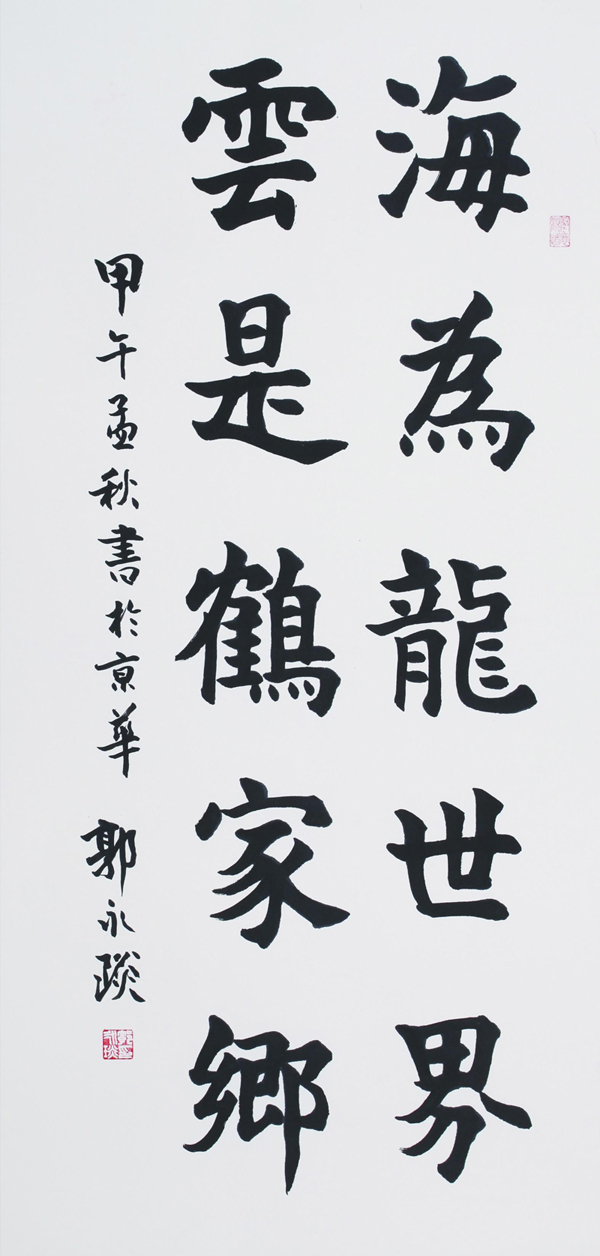 海為龍世界
雲是鶴家鄉
甲午孟秋書於京華 郭永琰